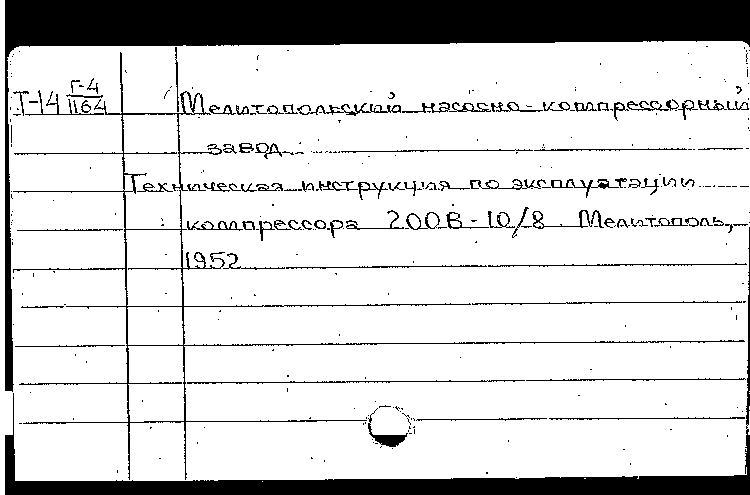 Т-14 Г-4/1164 Мелитопольский насосно-компрессорный
завод.
Техническая инструкция по эксплуатации
компрессора 200В-10/8. Мелитополь,
1952